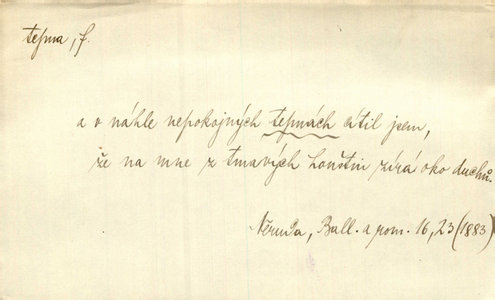 tepna, f.
a v náhle nepokojných tepnách cítil jsem,
že na mne z tmavých houštin zírá oko duchů.
Neruda, Ball. a rom. 16, 23 (1883)